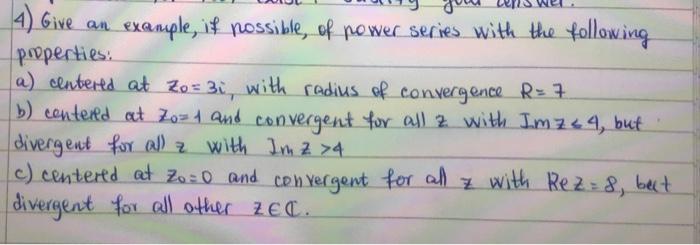 your answer.
4) Give an example, if possible, of power series with the following
properties:
a) centered at z₀=3i, with radius of convergence R=7
b) centered at z₀=1 and convergent for all z with Im z ≤ 4, but
divergent for all z with Im z >4
c) centered at z₀=0 and convergent for all z with Re z = 8, but
divergent for all other z∈ℂ.